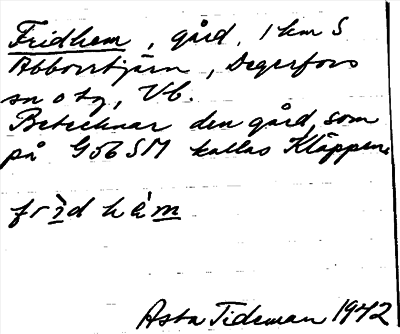 Fridhem, gård, 1 km S
Abborrtjärn, Degerfors
sn o tg, Vb.
Betecknar den gård, som
på GöbSM kallas Kläppen.
frìd hè́m
Asta Tideman 1942